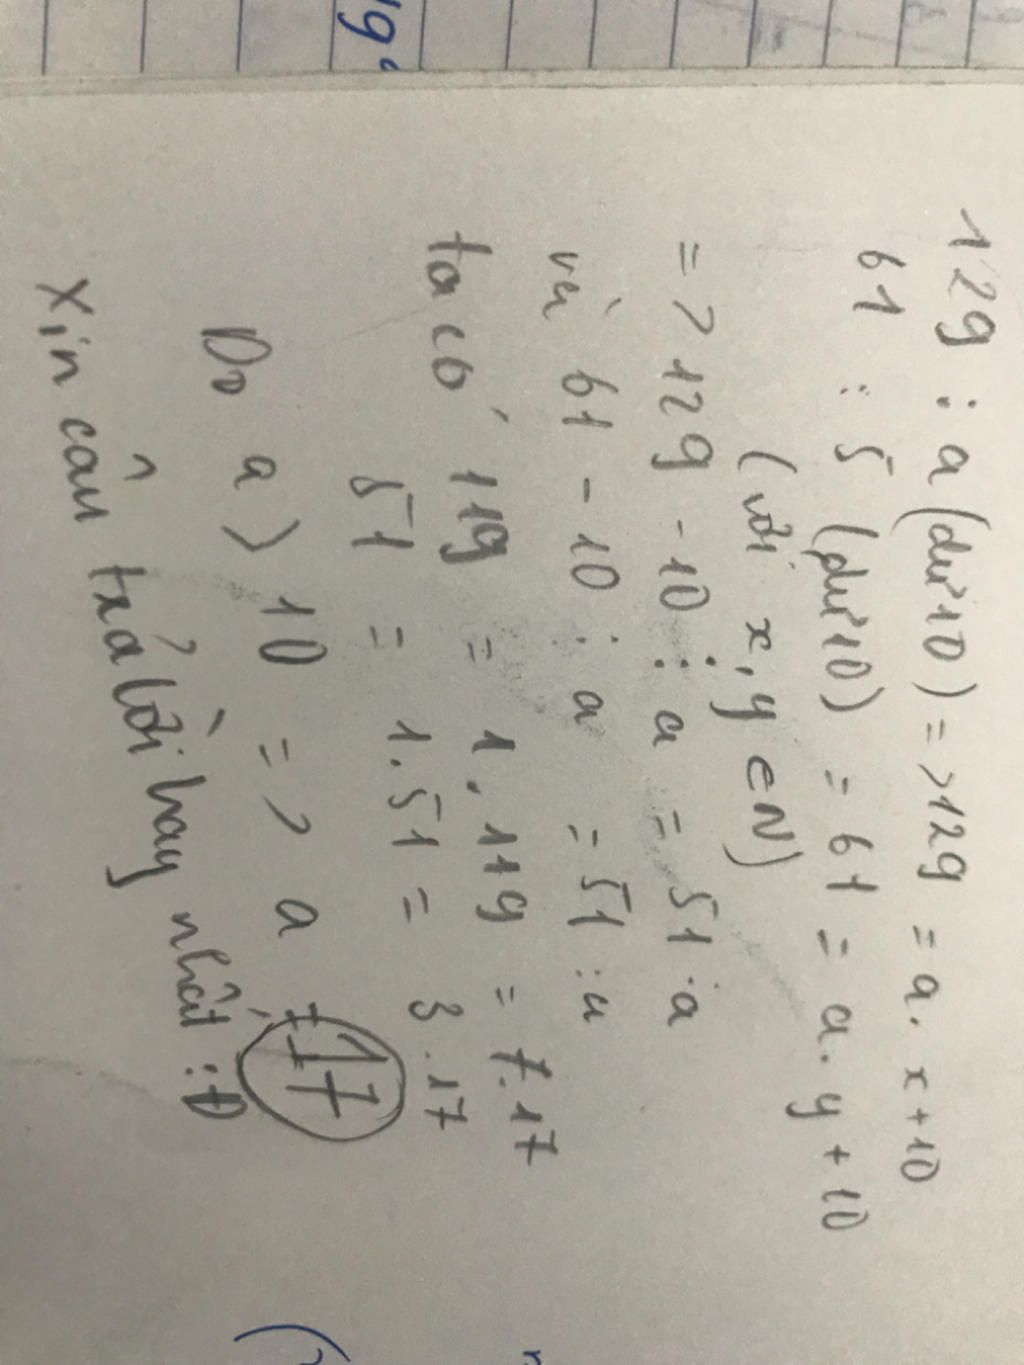 129 : a (dư 10) => 129 = a. x + 10
61 : 5 (dư 10) = 61 = a. y + 10
(với x, y ∈ N)
=> 129 - 10 ⋮ a = 51 . a
và 61 - 10 : a = 51 : a
ta có 119 = 1 . 119 = 7.17
51 = 1.51 = 3.17
Do a > 10 => a = 17
Xin câu trả lời hay nhất :Đ